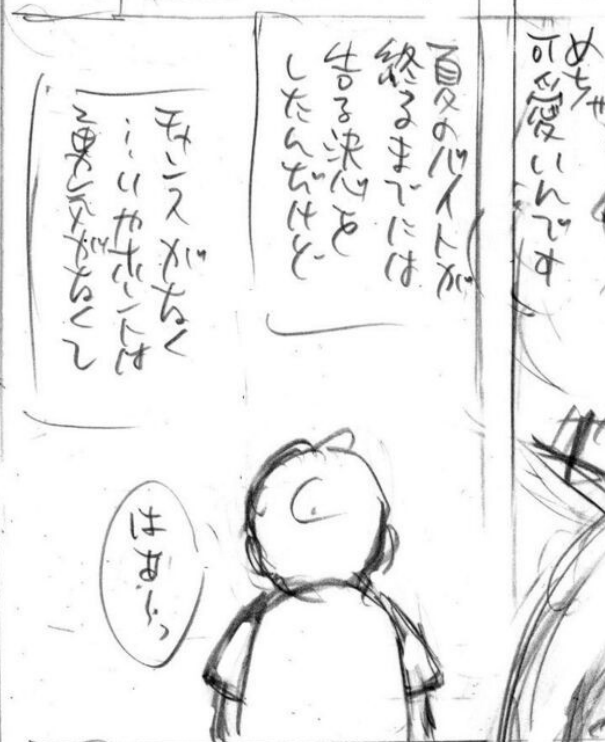 めちゃ
可愛いんです
夏のバイトが
終るまでには
告る決心を
したんだけど
チャンスがなく
…いやホントは
勇気がなくて
はあ〜っ